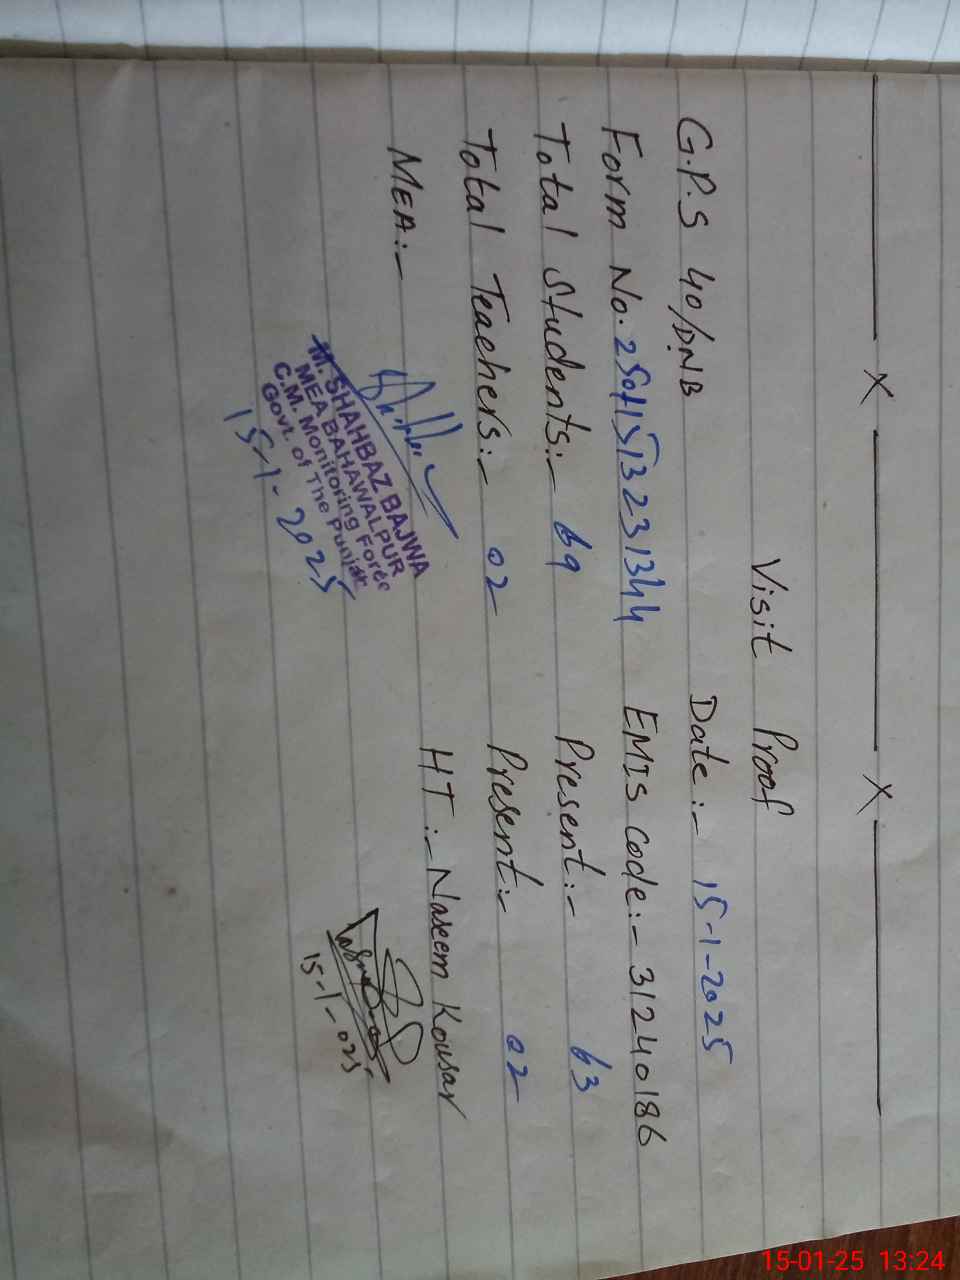 Visit Proof
G.P.S 40/DNB Date:- 15-1-2025
Form No. 25011513231344 EMIS code:- 31240186
Total Students:- 69 Present:- 63
Total Teachers:- 02 Present:- 02
MEA:- HT:- Naseem Kousar
M. SHAHBAZ BAJWA
MEA BAHAWALPUR
C.M. Monitoring Force
Govt. of The Punjab
15-1-2025
15-1-025
15-01-25 13:24